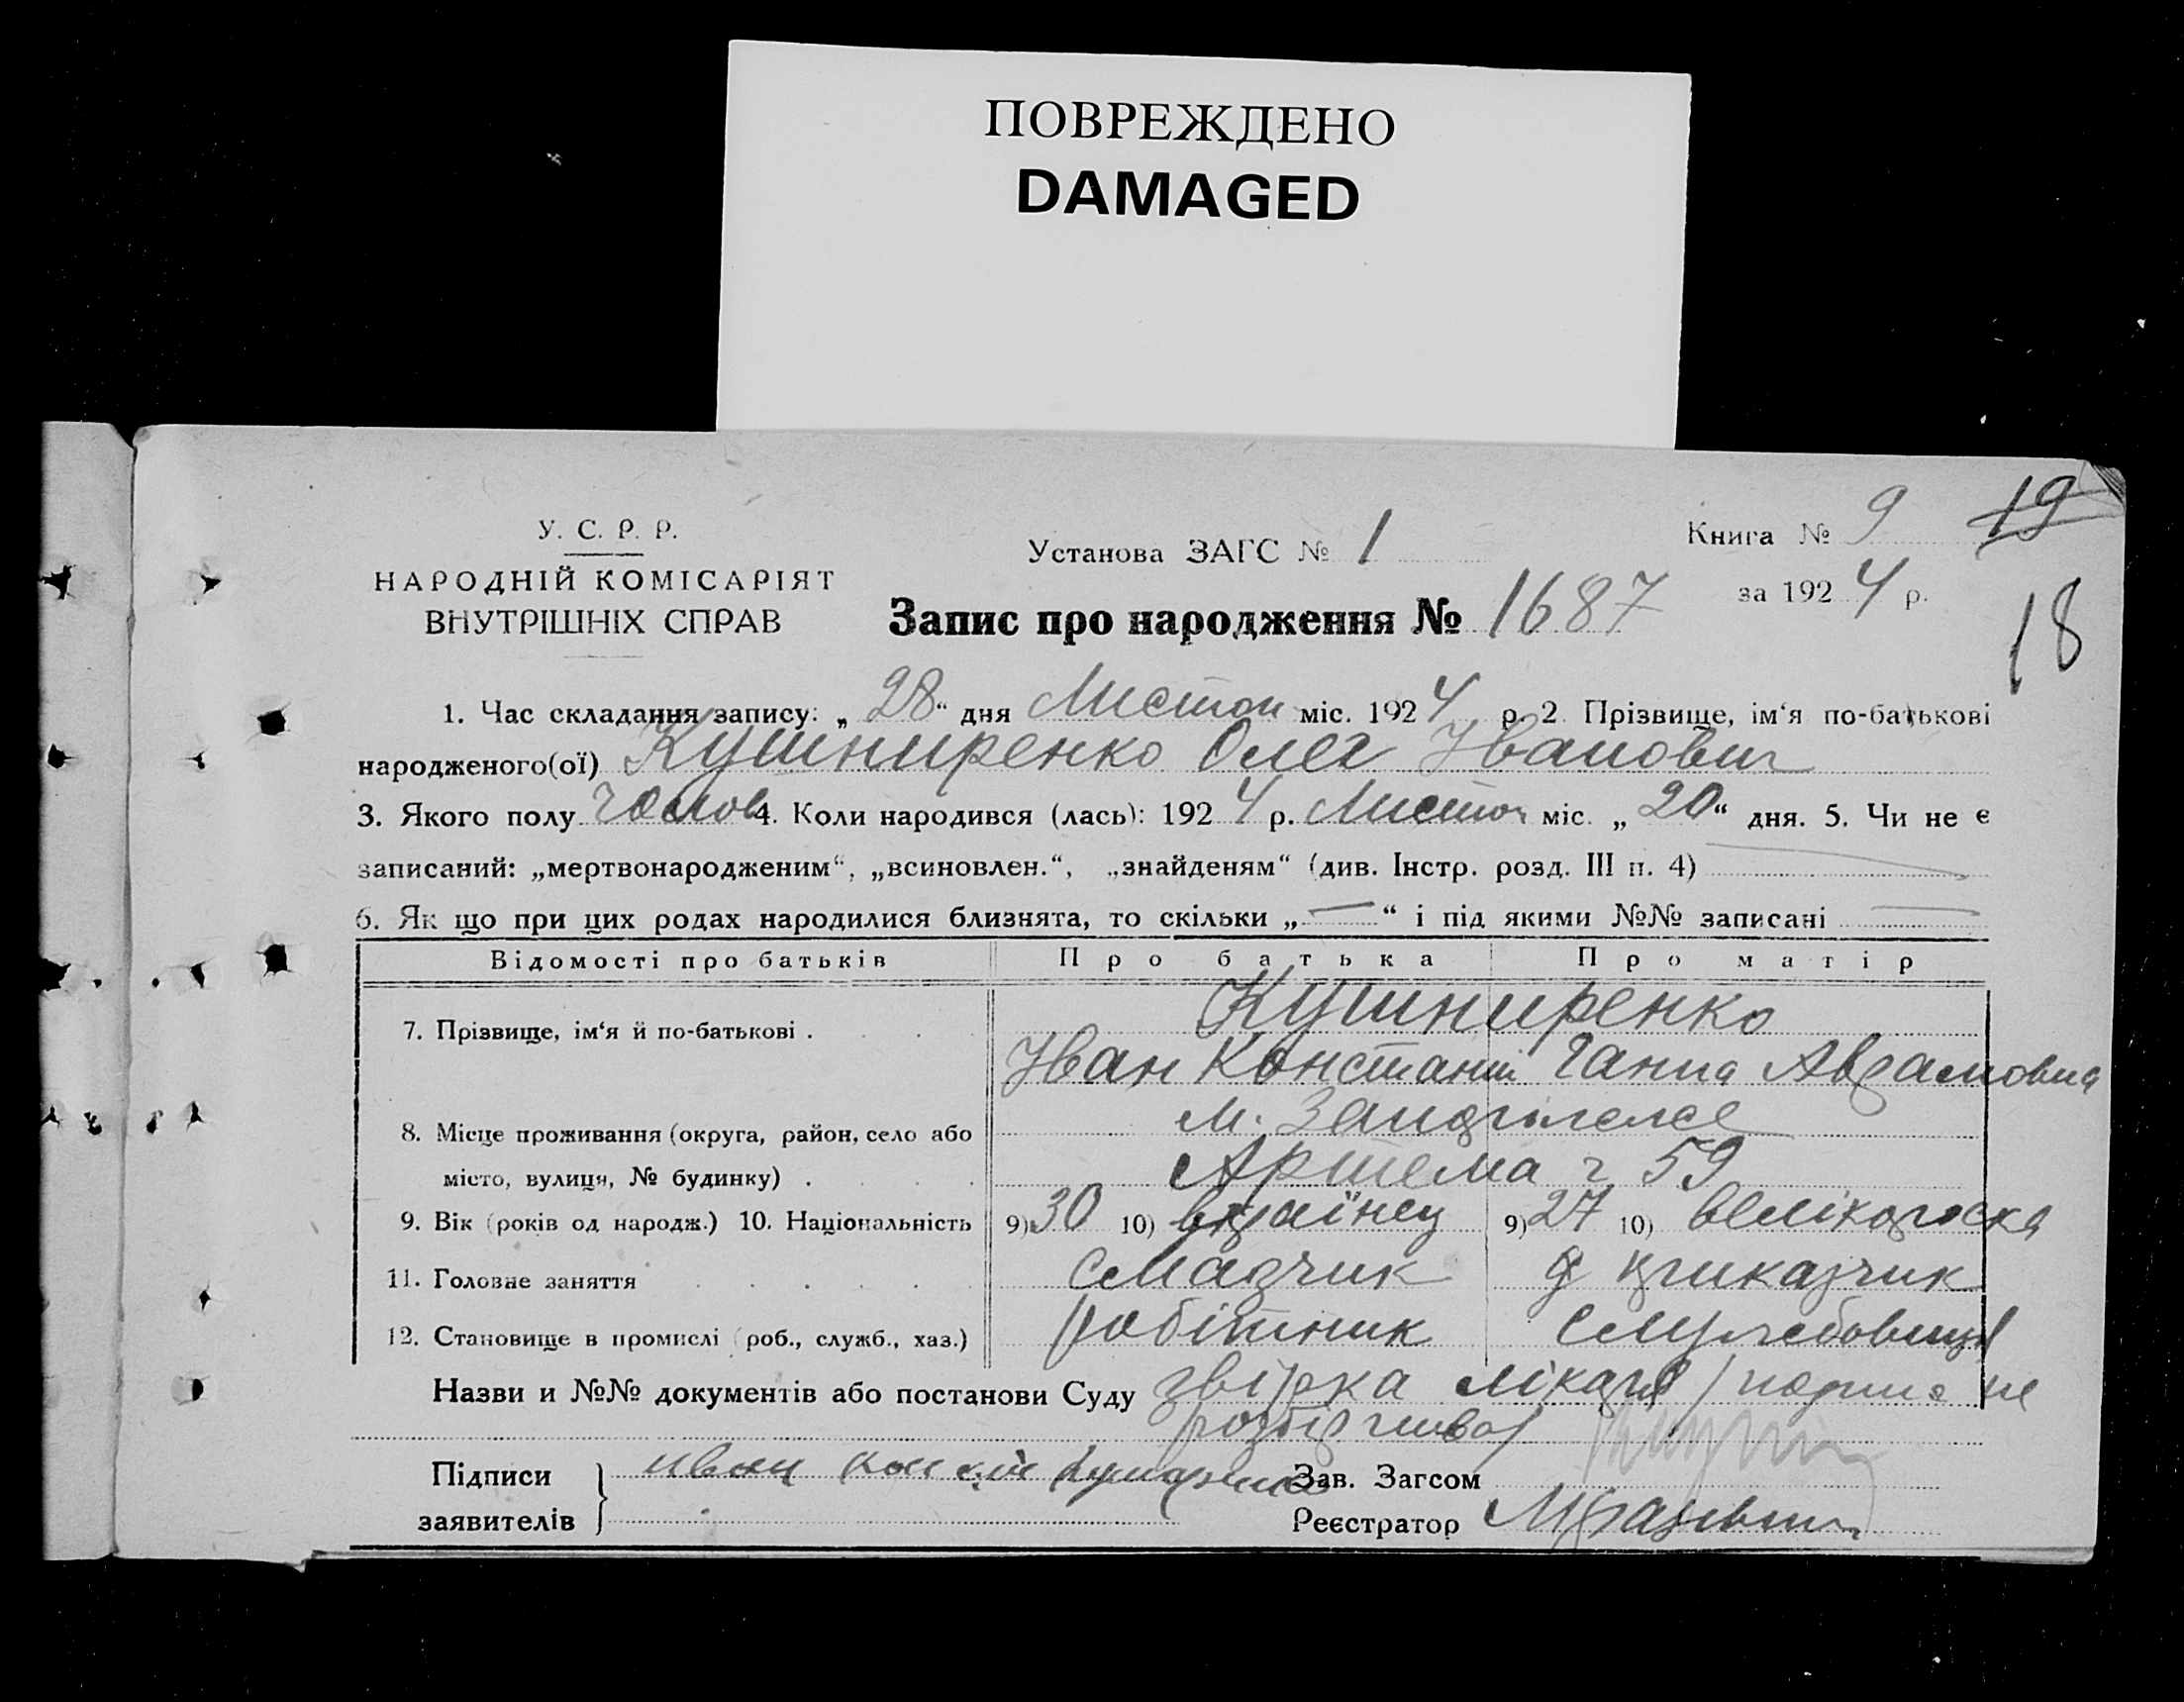 ПОВРЕЖДЕНО
DAMAGED
У. С. Р. Р.
НАРОДНІЙ КОМІСАРІЯТ
ВНУТРІШНІХ СПРАВ
Установа ЗАГС № 1
Книга № 9 19
за 1924 р.
18
Запис про народження № 1687
1. Час складання запису: „28“ дня Листоп міс. 1924 р. 2 Прізвище, ім‘я по-батькові
народженого(ої) Кушниренко Олег Іванович
3. Якого полу чолов 4. Коли народився (лась): 1924 р. Листоп міс. „20“ дня. 5. Чи не є
записаний: „мертвонародженим“, „всиновлен.“, „знайденям“ (див. Інстр. розд. III п. 4) —
6. Як що при цих родах народилися близнята, то скільки „—“ і під якими №№ записані —
Відомості про батьків Про батька Про матір
7. Прізвище, ім‘я й по-батькові . Кушниренко
Іван Констант Ганна Аврамовна
8. Місце проживання (округа, район, село або м.
місто, вулиця, № будинку) . Артема ч 59
9. Вік (років од народж.) 10. Національність 9) 30 10) вкраїнец 9) 27 10) велікороска
11. Головне заняття смазчик приказчик
12. Становище в промислі (роб., служб., хаз.) робітник службовиця
Назви и №№ документів або постанови Суду звірка лікаря /подпис не
розбірчива/
Підписи Иван Кушниренко Зав. Загсом
заявителів Реєстратор